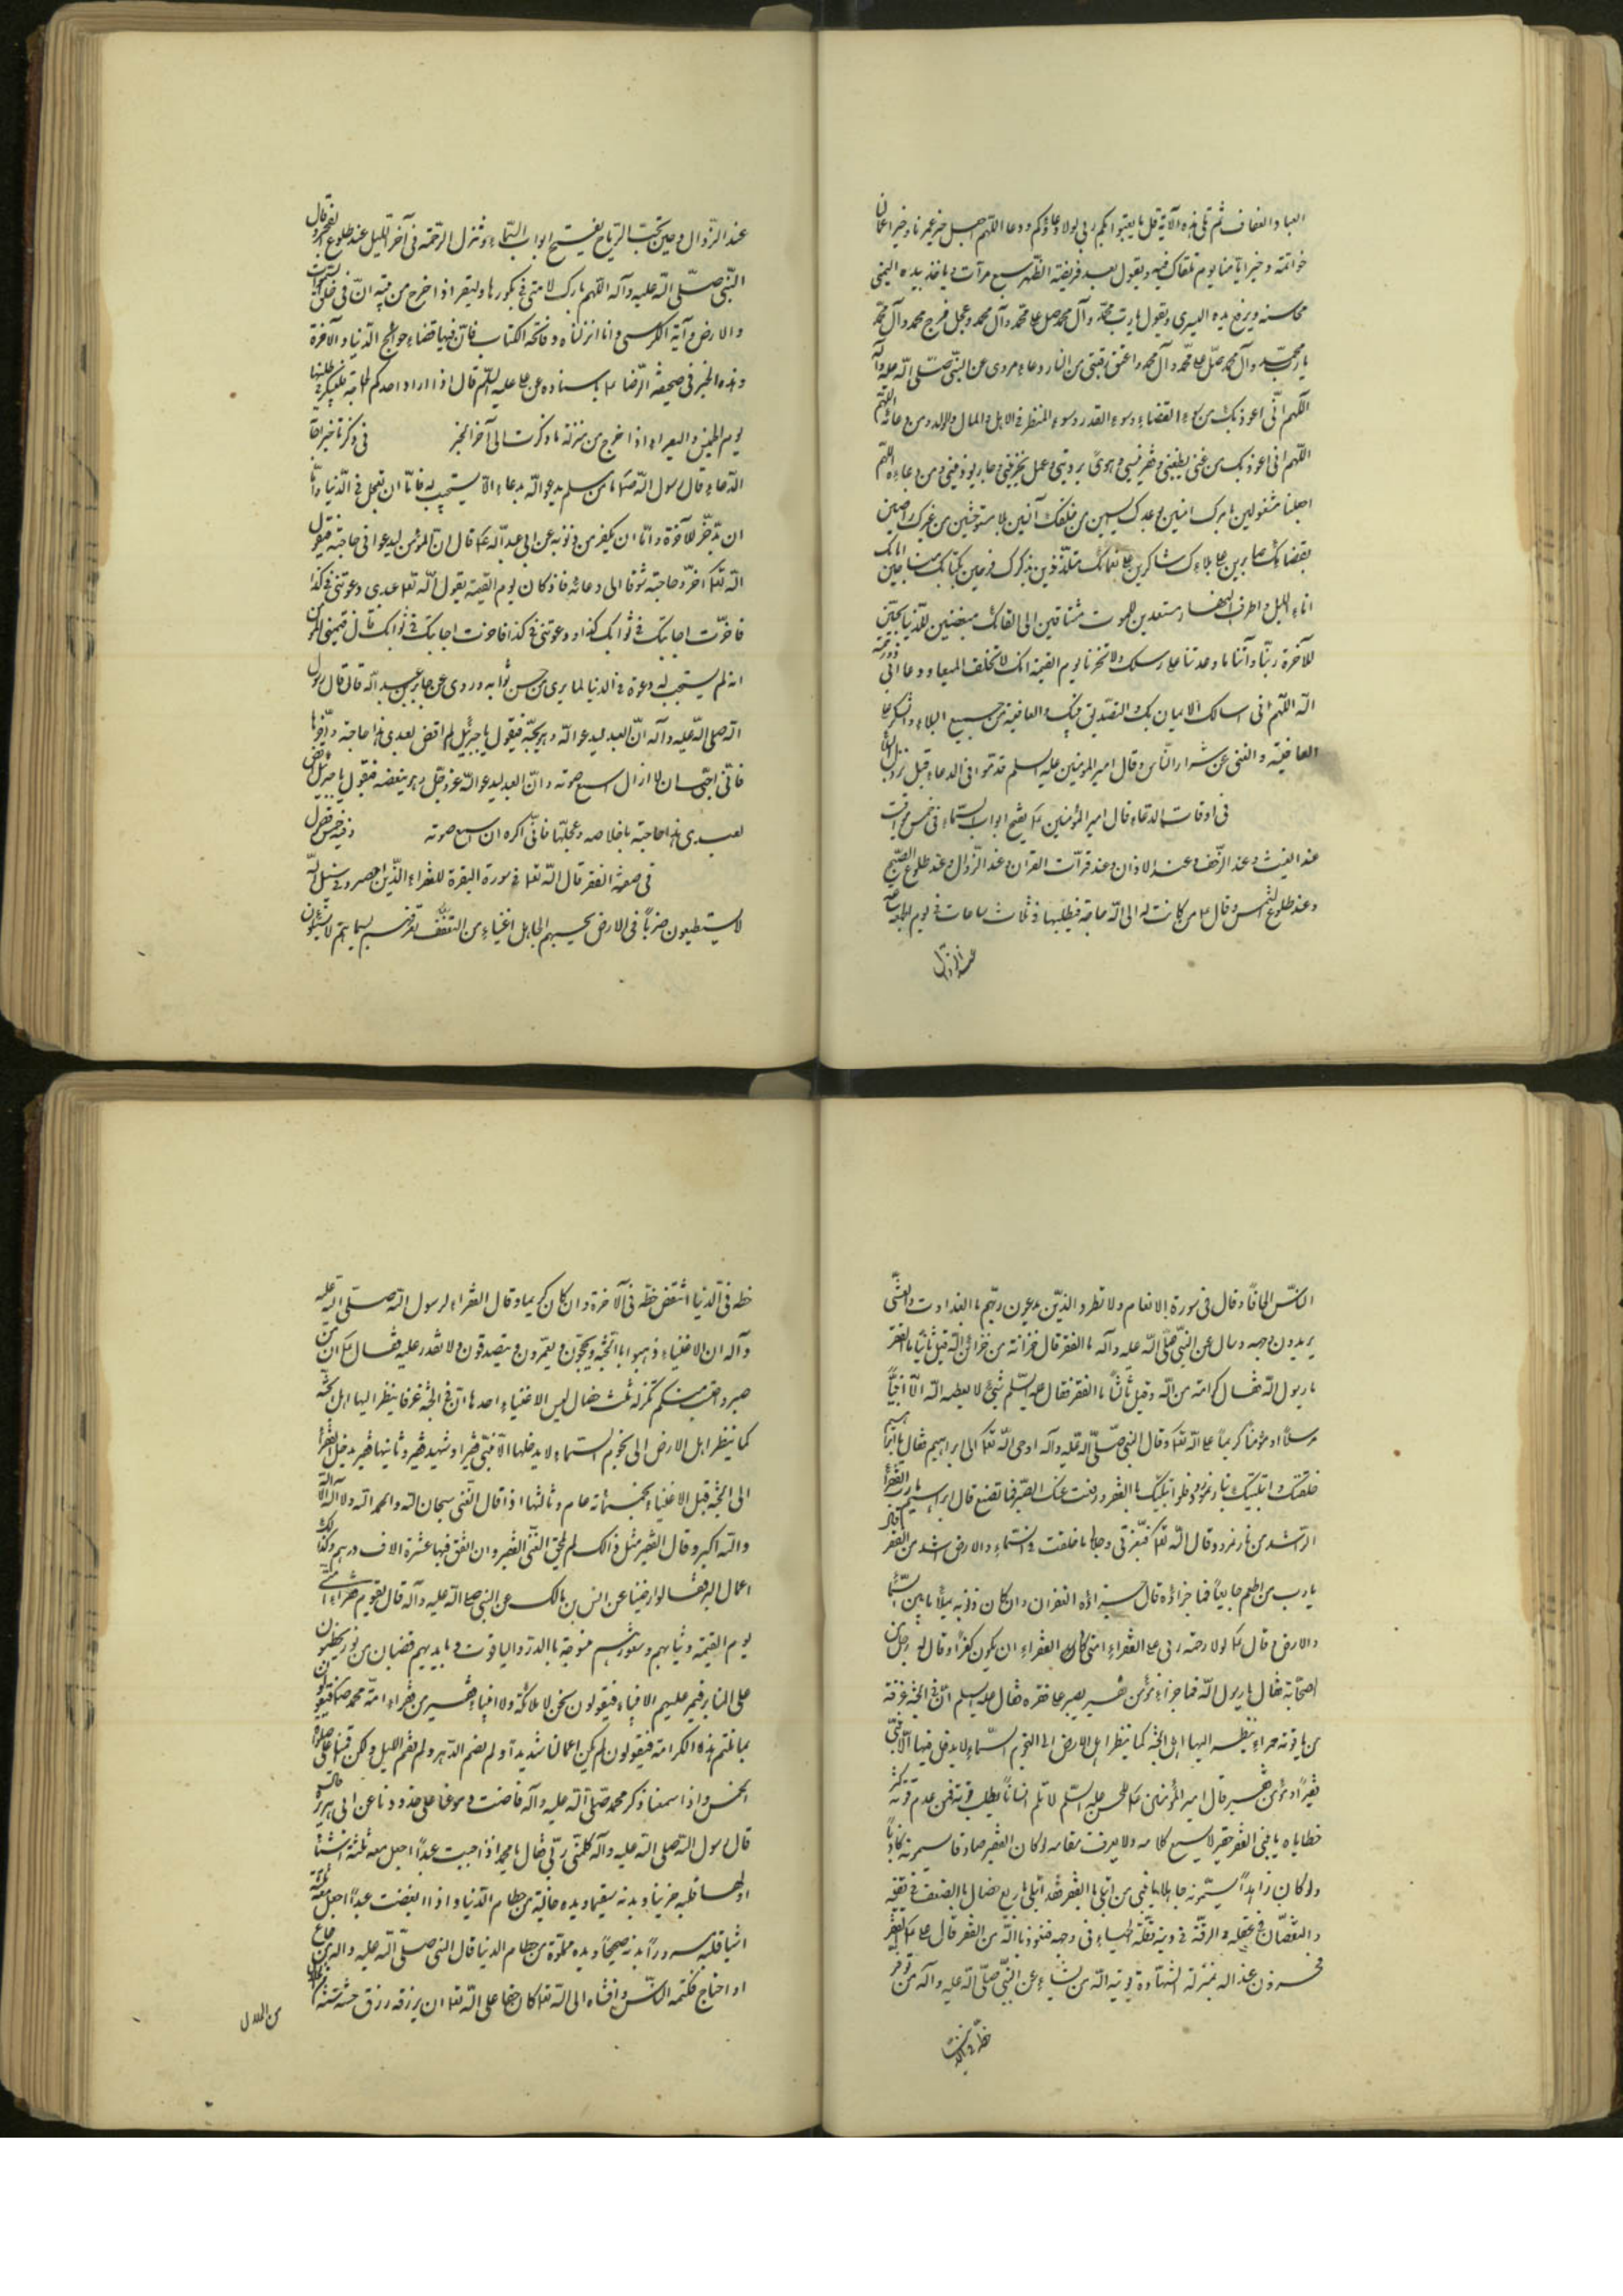 العباد العفاف ثم تلى هذه الآية قل ما يعبؤا بكم ربى لولا دعاؤكم ودعا اللهم اجعل خير عمرنا وخير اعمالنا
خواتمه وخير ايامنا يوم نلقاك فيه ويقول بعد فريضة الظهر سبع مرات وياخذ بيده اليمنى
محاسنه ويرفع يده اليسرى ويقول يا رب محمد وآل محمد صل على محمد وآل محمد وعجل فرج محمد وآل محمد
يا رب محمد وآل محمد صل على محمد وآل محمد واعتق رقبتى من النار دعاء مروى عن النبى صلى الله عليه وآله
اللهم انى اعوذ بك من سوء القضاء وسوء القدر وسوء المنظر فى الاهل والمال والولد ومن دعائه
اللهم انى اعوذ بك من غنى يطغينى وفقر ينسينى وهوى يردينى وعمل يخزينى وجار يؤذينى ومن دعاءه اللهم
اجعلنا مشغولين بامرك امنين بوعدك آيسين من خلقك آنسين بك مستوحشين من غيرك راضين
بقضائك صابرين على بلائك شاكرين على نعمائك متلذذين بذكرك فرحين بكتابك مناجين اياك
اناء الليل واطراف النهار مستعدين للموت مشتاقين الى لقائك مبغضين للدنيا محبين
للآخرة ربنا وآتنا ما وعدتنا على رسلك ولا تخزنا يوم القيمة انك لا تخلف الميعاد ودعا ابى ذر رحمه
الله اللهم انى اسالك الايمان بك والتصديق بنبيك والعافية من جميع البلاء والشكر على
العافية والغنى عن شرار الناس وقال امير المؤمنين عليه السلم قدموا فى الدعاء قبل نزول البلاء
فى اوقات الدعاء قال امير المؤمنين ع يفتح ابواب السماء فى خمس مواقيت
عند الغيث وعند الزحف وعند الاذان وعند قرآت القران وعند الزوال وعند طلوع الصبح
وعند طلوع الشمس وقال ع من كانت له الى الله حاجة فيطلبها فى ثلاث ساعات فى يوم الجمعة
عند الزوال
عند الزوال وحين تحب الرياح يفتح ابواب السماء وتنزل الرحمة فى آخر الليل عند طلوع الفجر وقال
النبى صلى الله عليه وآله اللهم بارك لامتى فى بكورها وليقرء اذا خرج من بيته ان فى خلق السموات
والارض وآية الكرسى وانا انزلناه وفاتحة الكتاب فان فيها قضاء حوائج الدنيا والآخرة
وهذه الخبر فى صحيفة الرضا ع باسناده عن على عليه السلم قال اذا اراد احدكم الحاجة فليبكر فى طلبها
يوم الخميس وليقراء اذا خرج من منزله ما ذكرت الى آخر الخبر فى ذكر تاخير اجابة
الدعاء قال رسول الله ص ما من مسلم يدعو الله بدعاء الا يستجيب له فاما ان يعجل فى الدنيا واما
ان يدخر للآخرة واما ان يكفر من ذنوبه عن ابى عبد الله ع قال ان المؤمن ليدعوا فى حاجته فيقول
الله تعا اخروا حاجته شوقا الى دعائه فاذ كان يوم القيمة يقول الله تعا عبدى دعوتنى فى كذا
فاخرت اجابتك فى ثوابك كذا ودعوتنى فى كذا فاخرت اجابتك فى ثوابك قال فيتمنى المؤمن
انه لم يستجب له دعوة فى الدنيا لما يرى من حسن ثوابه وروى عن جابر بن عبد الله قال قال رسول
الله صلى الله عليه وآله ان العبد ليدعو الله وهو يحبه فيقول يا جبرئيل اقض لعبدى هذا حاجته واخرها
فانى احب ان لا ازال اسمع صوته وان العبد ليدعو الله عز وجل وهو يبغضه فيقول يا جبرئيل اقض
لعبدى هذا حاجته باخلاصه وعجلها فانى اكره ان اسمع صوته وفيه خمس فصول
فى صفة الفقر قال الله تعا فى سورة البقرة للفقراء الذين احصروا فى سبيل الله
لا يستطيعون ضربا فى الارض يحسبهم الجاهل اغنياء من التعفف تعرفهم بسيماهم لا يسئلون
الناس الحافا وقال فى سورة الانعام ولا تطرد الذين يدعون ربهم بالغداوت والعشى
يريدون وجهه وسال عن النبى صلى الله عليه وآله ما الفقر قال خزانة من خزائن الله قيل ثانيا ما الفقر
يا رسول الله فقال كرامة من الله وقيل ثالثا ما الفقر فقال عليه السلم شئ لا يعطيه الله الا نبيا
مرسلا او مؤمنا كريما على الله تعا وقال النبى صلى الله عليه وآله اوحى الله تعا الى ابراهيم فقال يا ابراهيم
خلقتك وابتليتك بنار نمرود فلو ابتليتك بالفقر ورفعت عنك الصبر فما تصنع قال ابراهيم يا رب الفقر
الى اشد من نار نمرود وقال الله تعا فبعزتى وجلالى ما خلقت فى السماء والارض اشد من الفقر قال
يا رب من اطعم جايعا فما جزاؤه قال جزاؤه الغفران وان كان ذنوبه يملأ ما بين السماء
والارض وقال ع لولا رحمة ربى على الفقراء امتى كاد الفقراء ان يكون كفرا وقال له رجل من
اصحابه فقال يا رسول الله فما جزاء مؤمن فقير يصبر على فقره فقال عليه السلم ان فى الجنة غرفة
من ياقوتة حمراء ينظر اليها اهل الجنة كما ينظر اهل الارض الى النجوم السماء لا يدخل فيها الا نبى
فقير او مؤمن فقير قال امير المؤمنين ع للحسن عليه السلم لا تلم انسانا يطلب قوته فمن عدم قوته كثر
خطاياه يا بنى الفقير حقير لا يسمع كلامه ولا يعرف مقامه لو كان الفقير صادقا يسمونه كاذبا
ولو كان زاهدا يسمونه جاهلا يا بنى من ابتلى بالفقر فقد ابتلى باربع خصال بالضعف فى يقينه
والنقصان فى عقله والرقة فى دينه وقلة الحياء فى وجهه فنعوذ بالله من الفقر قال على ع الفقر
مخزون عند الله بمنزلة الشهادة يؤتيه الله من يشاء عن النبى صلى الله عليه وآله من توفر
حظه فى الدنيا
حظه فى الدنيا انتقض حظه فى الآخرة وان كان كريما وقال الفقراء لرسول الله صلى الله عليه
وآله ان الاغنياء ذهبوا بالجنة ويحجون ويعتمرون ويتصدقون ولا نقدر عليه فقال ع ان من
صبر واحتسب منكم تكن له ثلث خصال ليس الاغنياء احدها ان فى الجنة غرفا ينظر اليها اهل الجنة
كما ينظر اهل الارض الى نجوم السماء لا يدخلها الا نبى فقير او شهيد فقير وثانيها فقير يدخل الفقراء
الى الجنة قبل الاغنياء بخمسمائة عام وثالثها اذا قال الغنى سبحان الله والحمد الله ولا اله الا الله
والله اكبر وقال الفقير مثل ذلك لم يلحق الغنى الفقير وان انفق فيها عشرة الاف درهم وكذلك
اعمال البر فقالوا رضينا عن انس بن مالك عن النبى صلى الله عليه وآله قال يقوم فقراء امتى
يوم القيمة وثيابهم وشعورهم منوجة بالدر والياقوت وبايديهم قضبان من نور يخطبون
على المنابر فيمر عليهم الانبياء فيقولون نحن لا ملائكة ولا انبياء نحن فقراء امة محمد ص فيقولون
بما نلتم هذه الكرامة فيقولون لم يكن اعمالنا شديدا ولم نصم الدهر ولم نقم الليل ولكن اقمنا على صلوة
الخمس واذا سمعنا ذكر محمد صلى الله عليه وآله فاضت دموعنا على خدودنا عن ابى هريرة
قال رسول الله صلى الله عليه وآله كلمنى ربى فقال يا محمد اذا احببت عبدا اجعل معه ثلثة اشياء
اولها قلبه حزينا وبدنه سقيما ويده خالية من حطام الدنيا واذا ابغضت عبدا اجعل معه ثلثة
اشيا قلبه مسرورا بدنه صحيحا ويده مملوة من حطام الدنيا قال النبى صلى الله عليه وآله من جاع
او احتاج فكتمه الناس وافشاه الى الله تعا كان حقا على الله تعا ان يرزقه رزق سنة
من الحلال